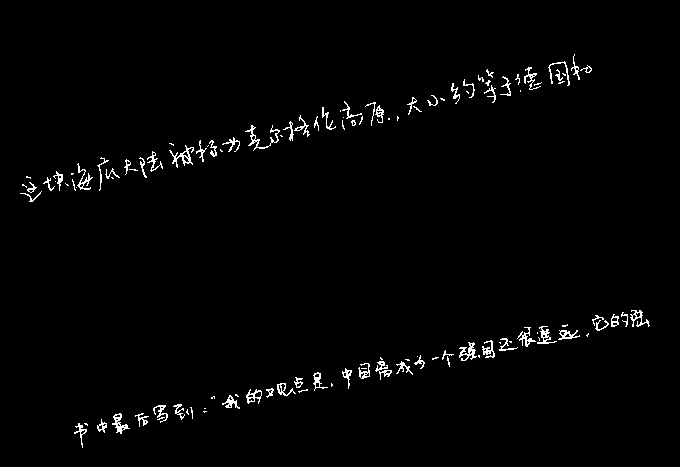 这块海底大陆被称为克尔格伦高原,大小约等于德国和
书中最后写到:“我的观点是,中国离成为一个强国还很遥远,它的陆